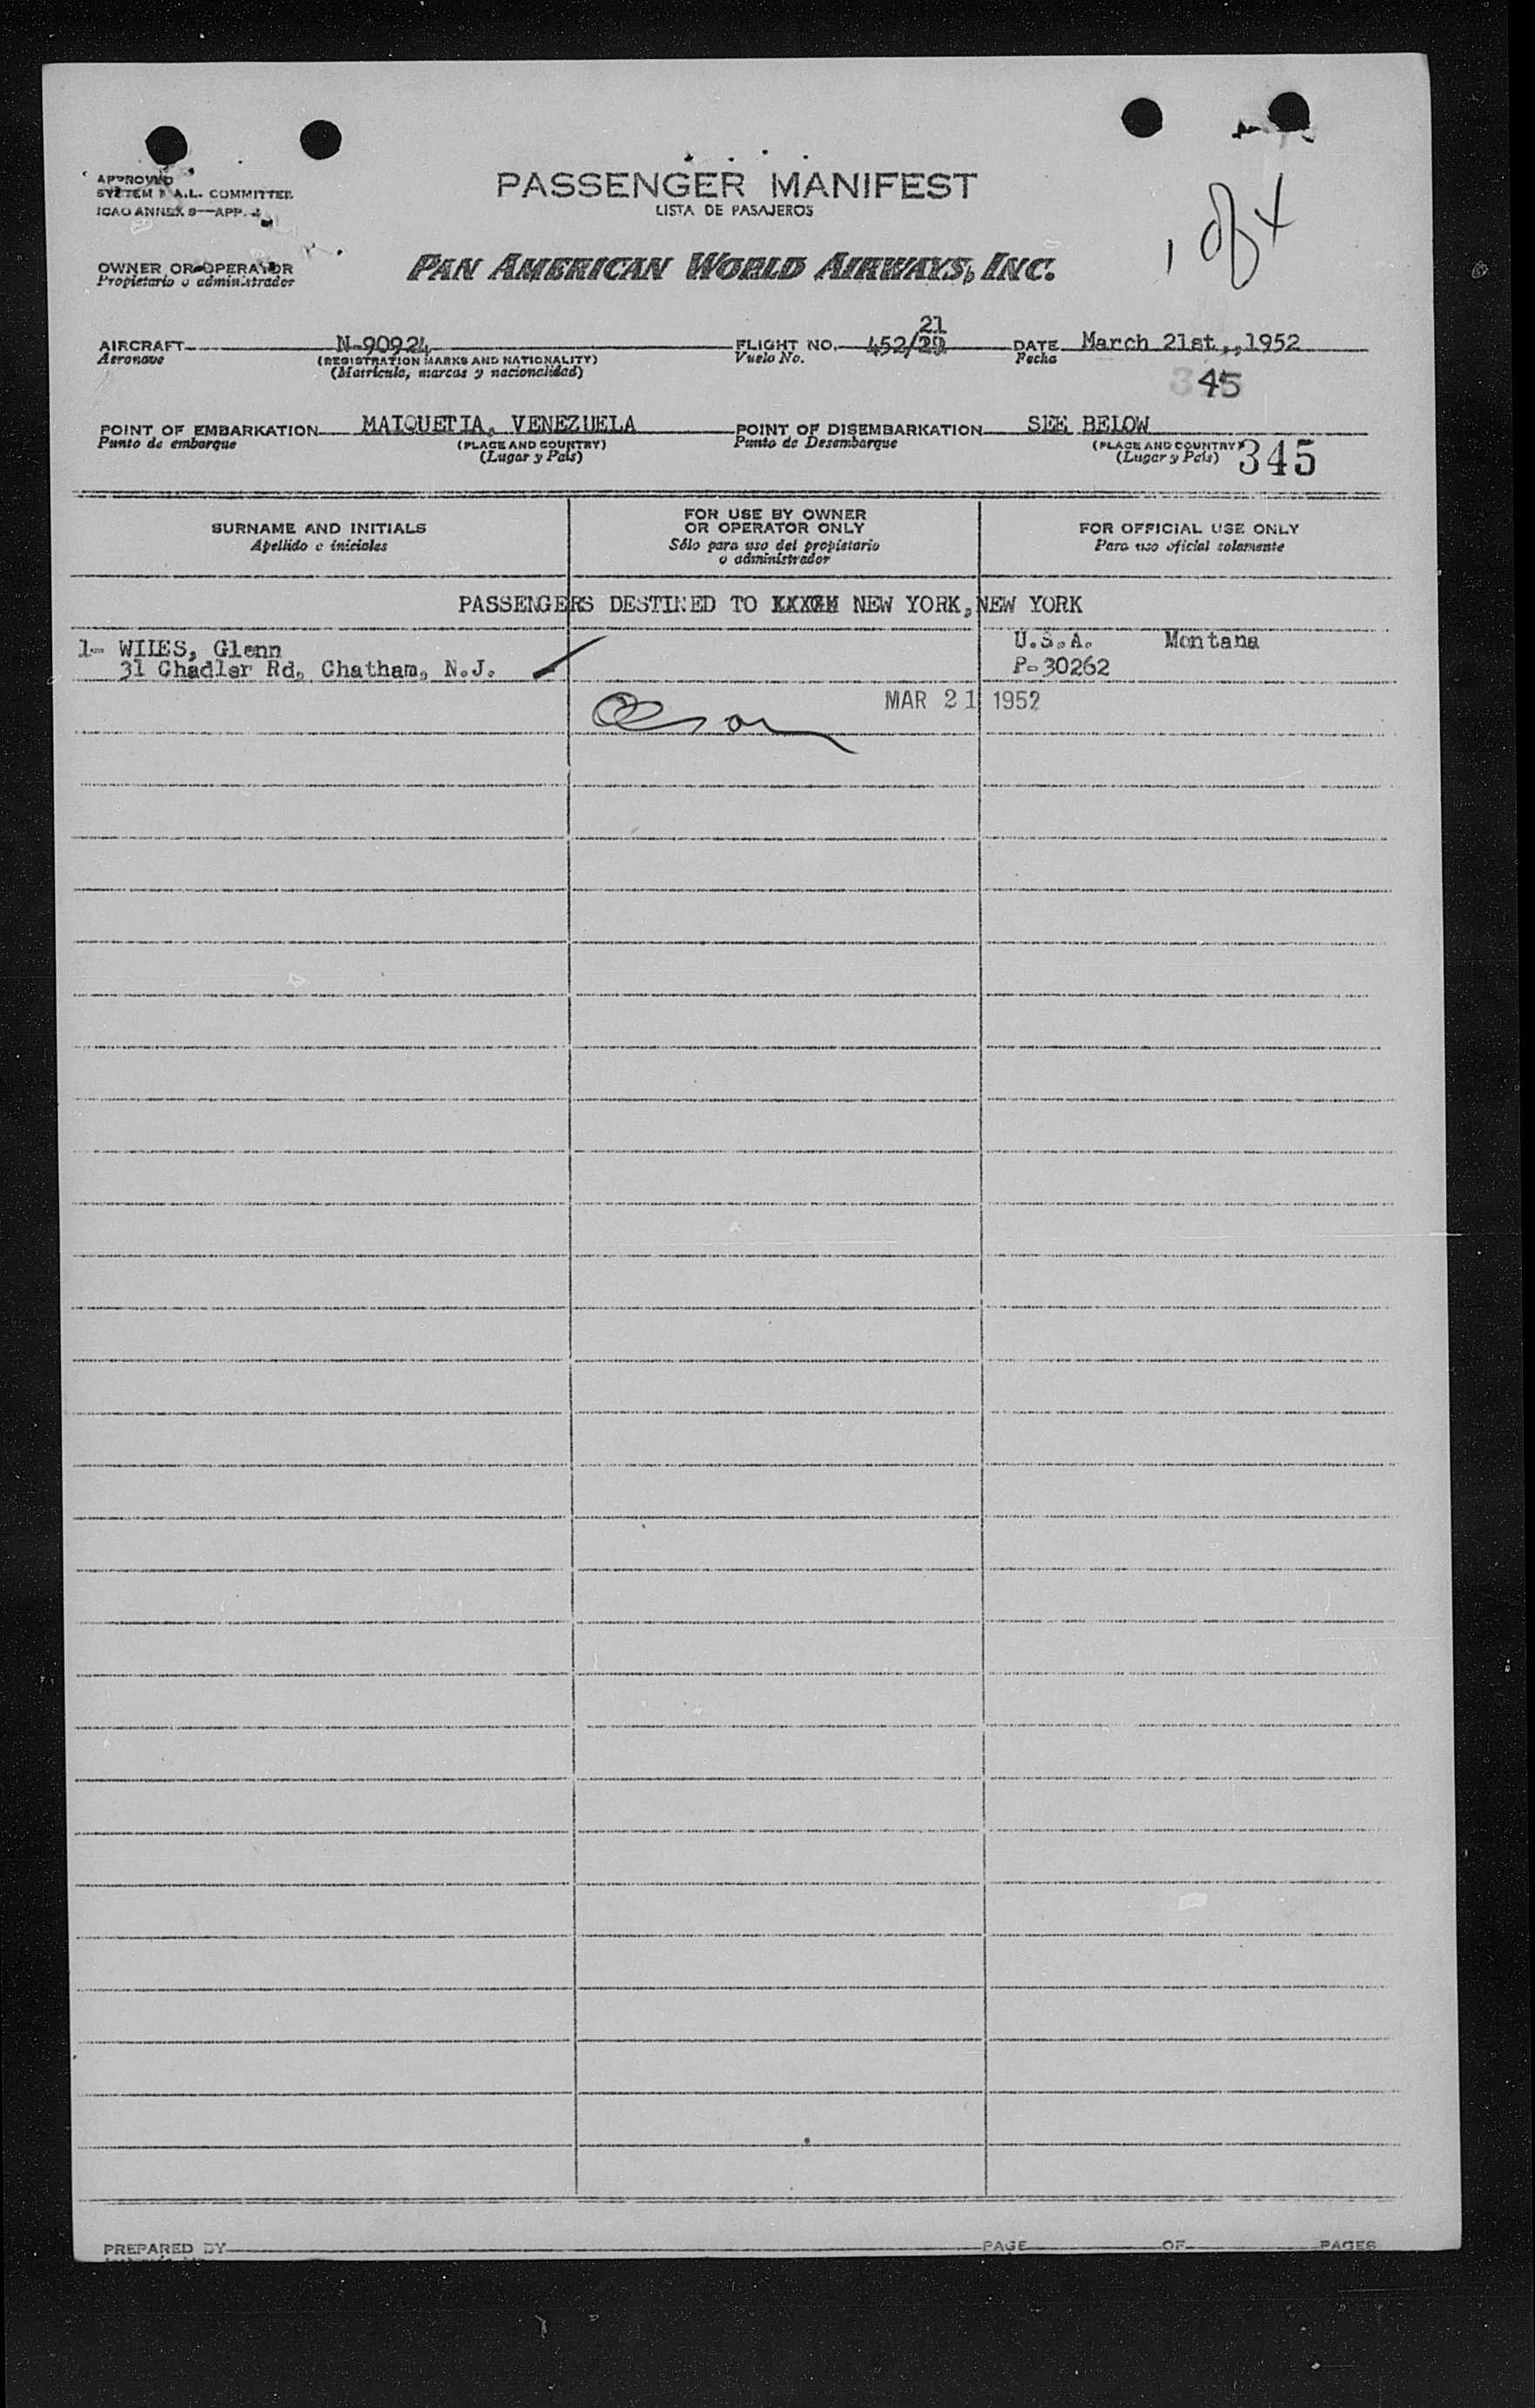 PASSENGER MANIFEST
LISTA DE PASAJEROS
APPROVED
SYSTEM F.A.L. COMMITTEE
ICAO ANNEX 9—APP. 
1 of 4
OWNER OR OPERATOR
Propietario o administrador
PAN AMERICAN WORLD AIRWAYS, INC.
21
AIRCRAFT N-90924 FLIGHT NO. 452/20 DATE March 21st,,1952
Aeronave (REGISTRATION MARKS AND NATIONALITY) Vuelo No. Fecha
(Matrícula, marcas y nacionalidad)
345
POINT OF EMBARKATION MAIQUETIA, VENEZUELA POINT OF DISEMBARKATION SEE BELOW
Punto de embarque (PLACE AND COUNTRY) Punto de Desembarque (PLACE AND COUNTRY)
(Lugar y País) (Lugar y País) 345
SURNAME AND INITIALS
Apellido e iniciales
FOR USE BY OWNER
OR OPERATOR ONLY
Sólo para uso del propietario
o administrador
FOR OFFICIAL USE ONLY
Para uso oficial solamente
PASSENGERS DESTINED TO NEW YORK,NEW YORK
1- WILES, Glenn U.S.A. Montana
31 Chadler Rd, Chatham, N.J. P-30262
MAR 21 1952
PREPARED BY PAGE OF PAGES